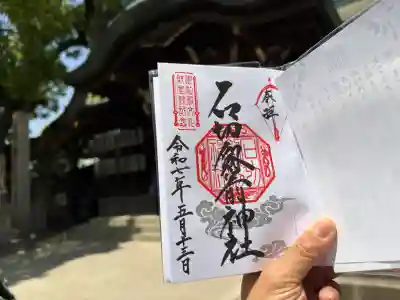 奉拝
石切劔箭神社
令和七年五月十三日